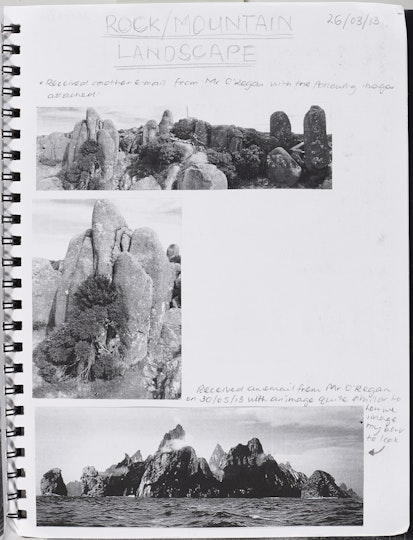 ROCK/MOUNTAIN
LANDSCAPE
26/03/13
• Received another email from Mr O'Regan with the following images
attached:
Received an email from Mr O'Regan
on 30/05/13 with an image quite similar to
how we
image
my
to look